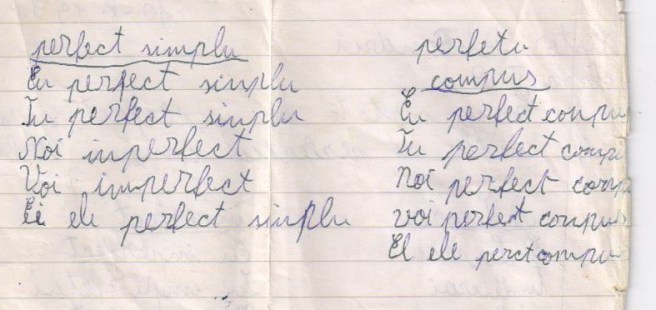 perfect simplu
Eu perfect simplu
Tu perfect simplu
Noi inperfect
Voi imperfect
Ei ele perfect simplu
perfetu
compus
Eu perfect conpu
Tu perfect comp
noi perfect comp
voi perfect conpus
El ele perctcompu